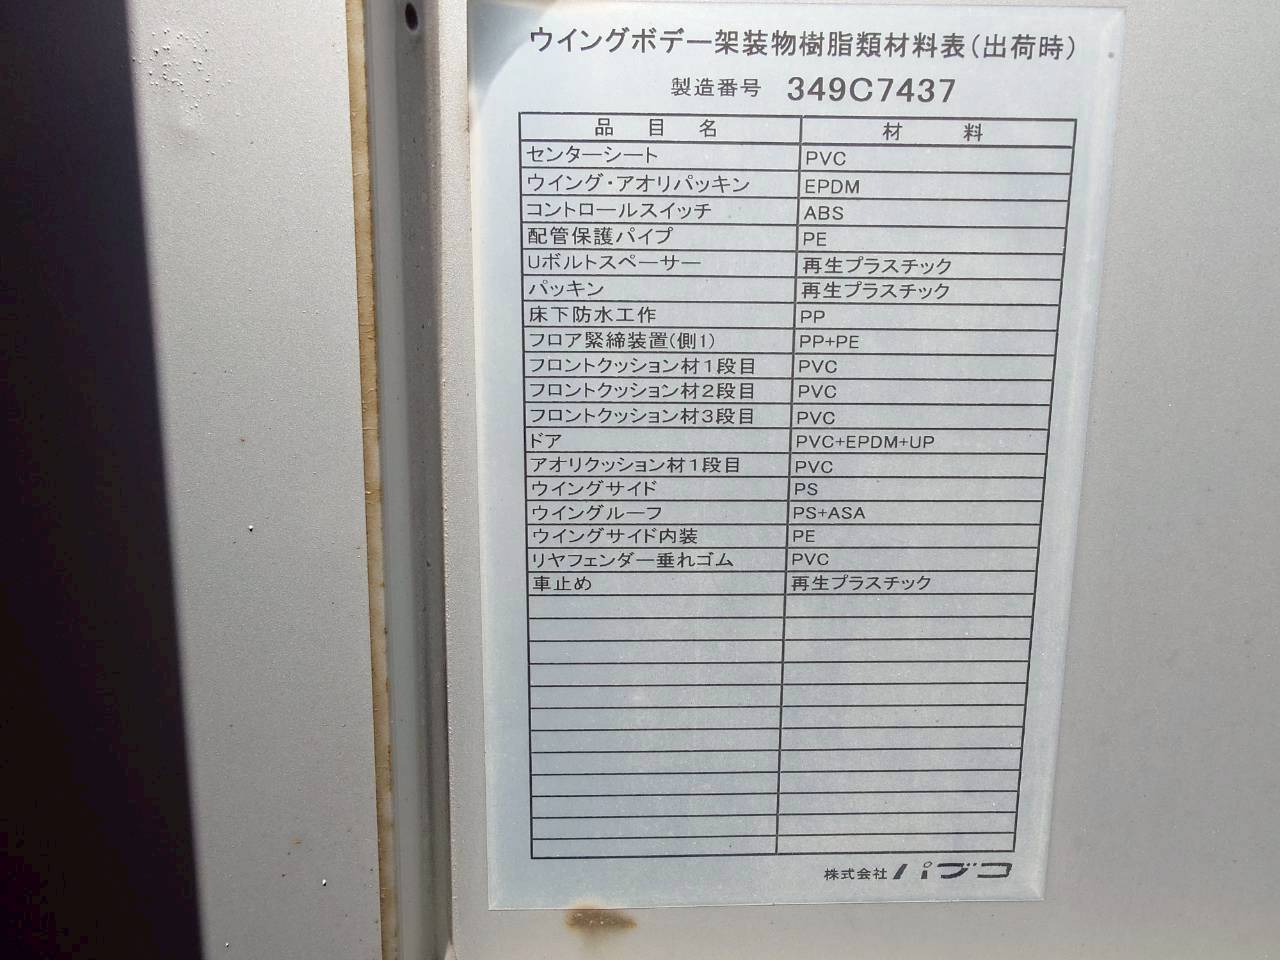 ウイングボデー架装物樹脂類材料表(出荷時)
製造番号 349C7437
品目名 材料
センターシート PVC
ウイング・アオリパッキン EPDM
コントロールスイッチ ABS
配管保護パイプ PE
Uボルトスペーサー 再生プラスチック
パッキン 再生プラスチック
床下防水工作 PP
フロア緊締装置(側1) PP+PE
フロントクッション材1段目 PVC
フロントクッション材2段目 PVC
フロントクッション材3段目 PVC
ドア PVC+EPDM+UP
アオリクッション材1段目 PVC
ウイングサイド PS
ウイングルーフ PS+ASA
ウイングサイド内装 PE
リヤフェンダー垂れゴム PVC
車止め 再生プラスチック
株式会社 パブコ